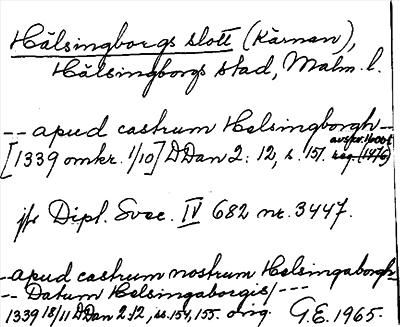 Hälsingborgs slott (Kärnan),
Hälsingborgs stad, Malm. l.
-- apud castrum Helsingborgh --
[1339 omkr. 1/10] DDan 2: 12, s. 151. reg. (1476)
jfr Dipl. Svec. IV 682 nr. 3447.
- apud castrum nostrum Helsingaborgh
-- Datum Helsingaborgis/ ---
1339 18/11 DDan 2:12, ss. 154, 155. orig. G.E. 1965.